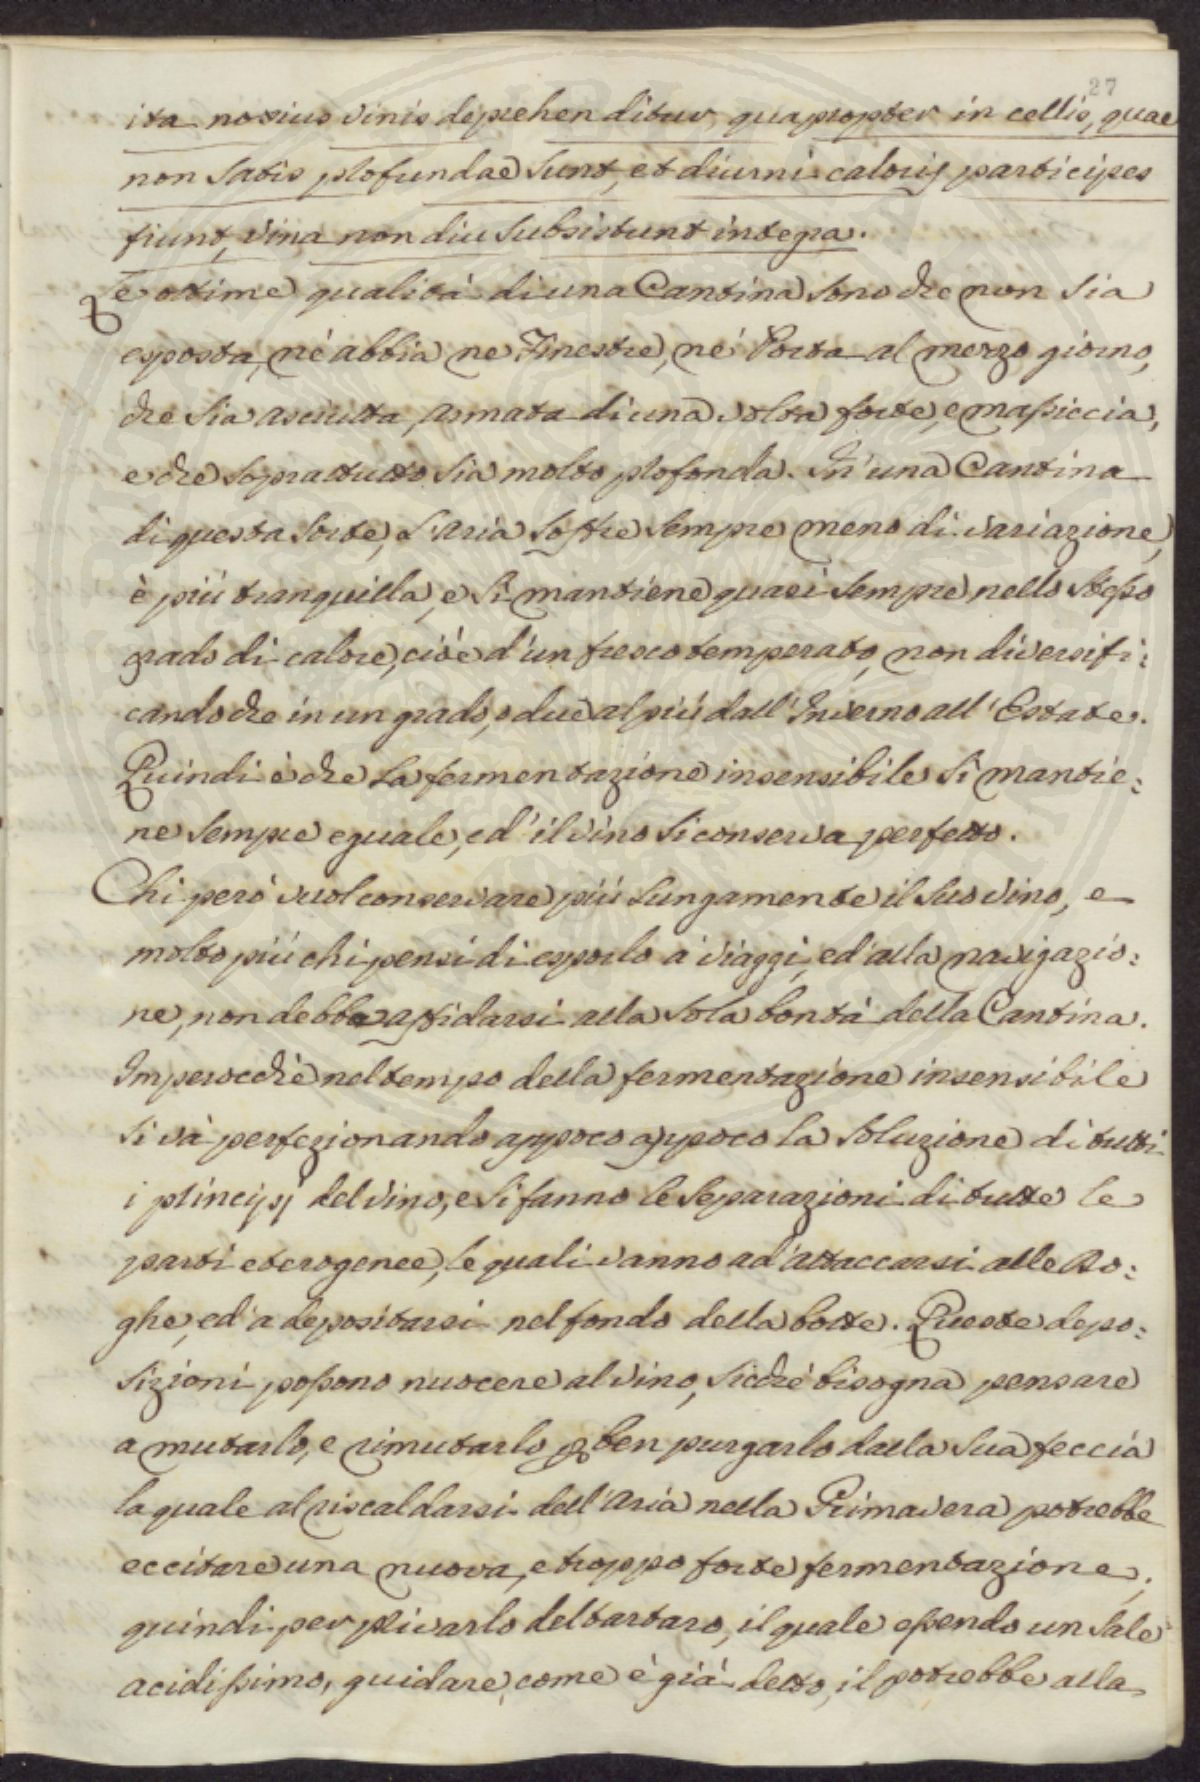 27
ita noxius vinis deprehenditur, quapropter in cellis, quae
non satis profundae sunt, et diurni caloris participes
fiunt, vina non diu subsistunt integra.
Le ottime qualità di una Cantina sono che non sia
esposta, né abbia ne Finestre, né Porta al mezzo giorno,
che sia asciutta, armata di una volta forte, e massiccia,
e che soprattutto sia molto profonda. In una Cantina
di questa sorte, l'aria soffre sempre meno di variazione,
è più tranquilla, e si mantiene quasi sempre nello stesso
grado di calore, cioè d'un fresco temperato, non diversifi:
cando che in un grado, o due al più dall'Inverno all'Estate.
Quindi è che la fermentazione insensibile si mantie:
ne sempre eguale, ed' il vino si conserva perfetto.
Chi però vuol conservare più lungamente il suo vino, e
molto più chi pensi di esporlo a' viaggi, ed' alla navigazio:
ne, non debbe affidarsi alla sola bontà della Cantina.
Imperocchè nel tempo della fermentazione insensibile
si và perfezionando appoco appoco la soluzione di tutti
i principj del vino, e si fanno le separazioni di tutte le
parti eterogenee, le quali vanno ad' attaccarsi alle Do:
ghe, ed' a depositarsi nel fondo della botte. Queste depo:
sizioni possono nuocere al vino, sicchè bisogna pensare
a mutarlo, e rimutarlo p ben purgarlo dalla sua feccia
la quale al riscaldarsi dell'aria nella Primavera potrebbe
eccitare una nuova, e troppo forte fermentazione;
quindi per privarlo del tartaro, il quale essendo un sale
acidissimo, guidare, come è già detto, il potrebbe alla